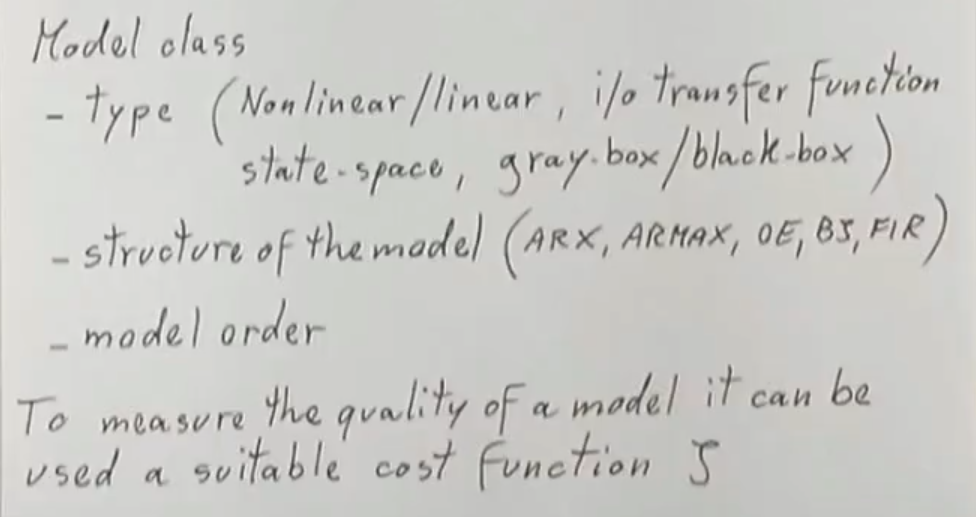 Model class
- type (Nonlinear/linear, i/o transfer function
state-space, gray-box/black-box)
- structure of the model (ARX, ARMAX, OE, BJ, FIR)
- model order
To measure the quality of a model it can be
used a suitable cost function J